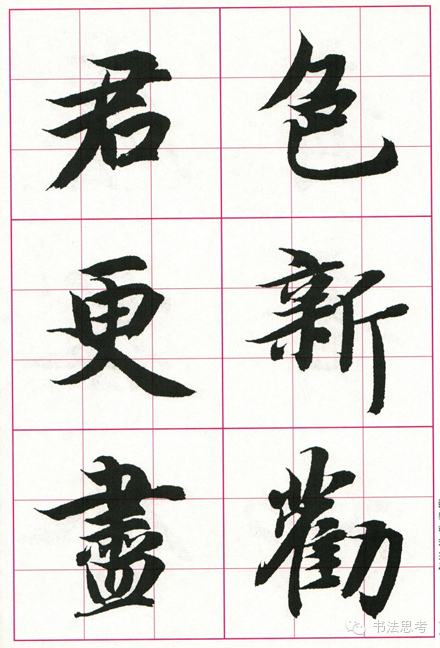 色新勸
君更盡
书法思考